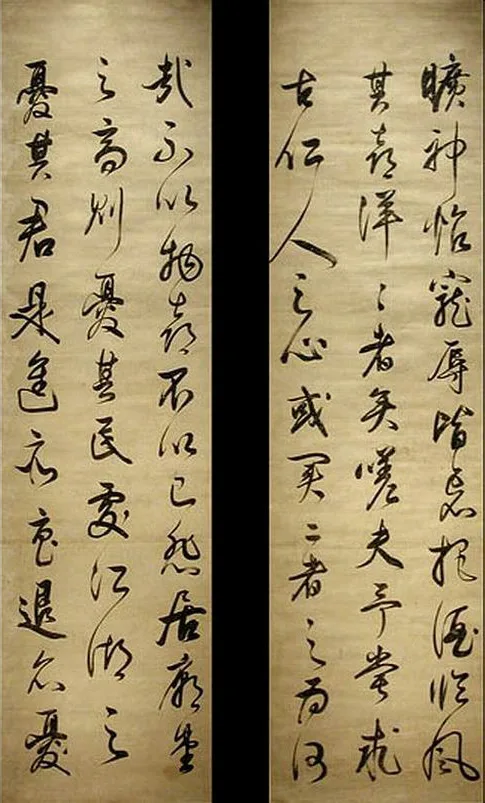 曠神怡寵辱皆忘把酒臨風
其喜洋々者矣嗟夫予嘗求
古仁人之心或異二者之為何
哉不以物喜不以己悲居廟堂
之高則憂其民處江湖之
憂其君是進亦憂退亦憂